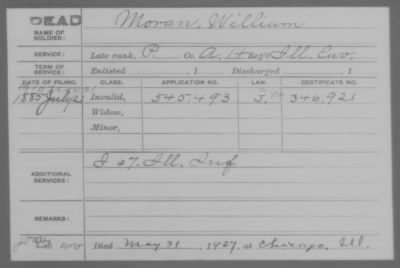 DEAD
NAME OF SOLDIER:
Moran, William
SERVICE:
Late rank, P. Co. A, 14 Reg't Ill. Cav.
TERM OF SERVICE:
Enlisted , 1 Discharged , 1
DATE OF FILING.
CLASS.
APPLICATION NO.
LAW.
CERTIFICATE NO.
1885 July 2
Invalid, 545.493 J. 346.921
Widow,
Minor,
ADDITIONAL SERVICES:
I 67. Ill. Inf
REMARKS:
Died May 31, 1927, at Chicago, Ill.